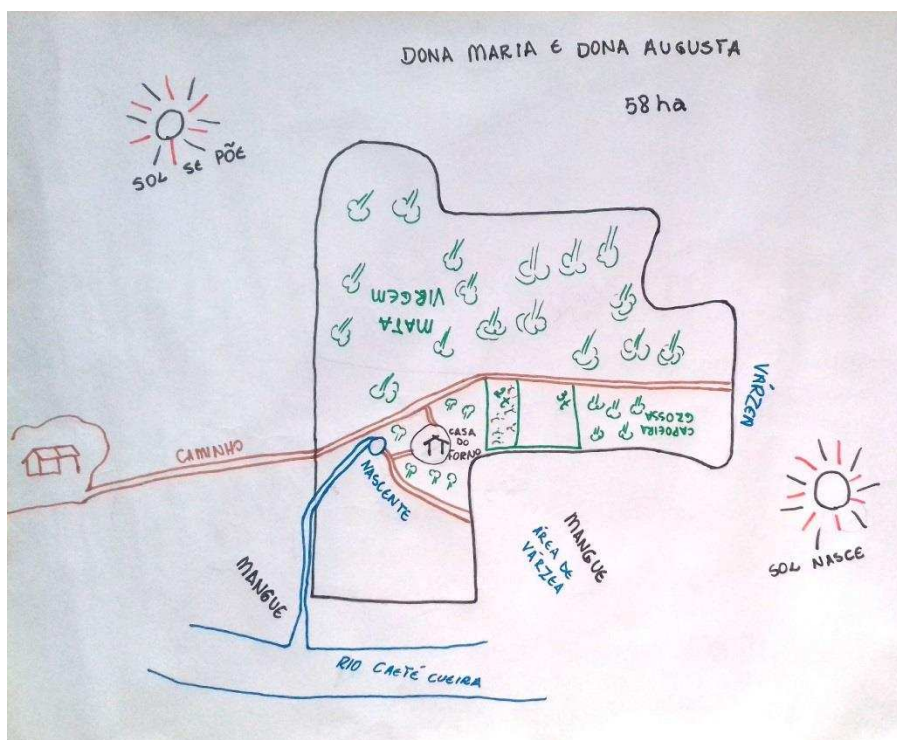 DONA MARIA E DONA AUGUSTA
58 ha
SOL SE PÕE
MATA
VIRGEM
VÁRZEA
CAPOEIRA
GROSSA
CASA
DO
FORNO
CAMINHO
NASCENTE
MANGUE
ÁREA DE
VÁRZEA
MANGUE
SOL NASCE
RIO CAETÉ CUEIRA